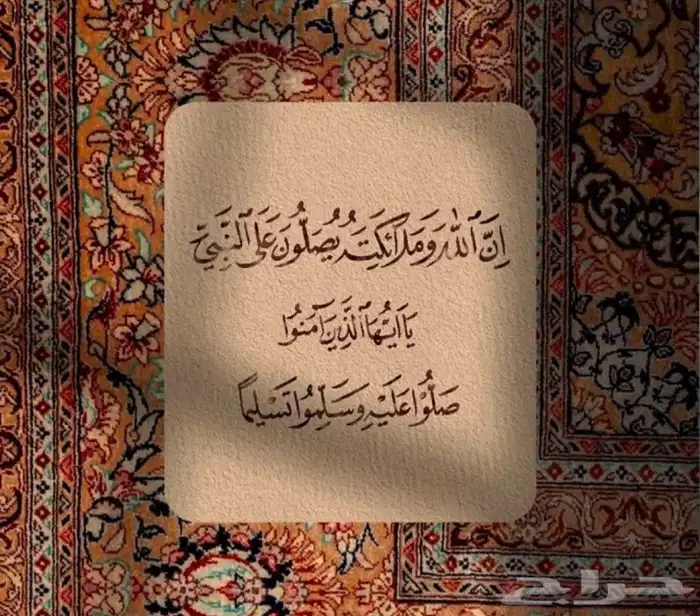 إِنَّ ٱللَّهَ وَمَلَائِكَتَهُ يُصَلُّونَ عَلَى ٱلنَّبِيِّ
يَا أَيُّهَا ٱلَّذِينَ آمَنُوا
صَلُّوا عَلَيْهِ وَسَلِّمُوا تَسْلِيمًا
حراج